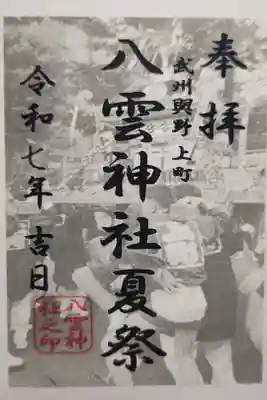 奉拝
武州與野上町
八雲神社夏祭
令和七年吉日
八雲神
社之印